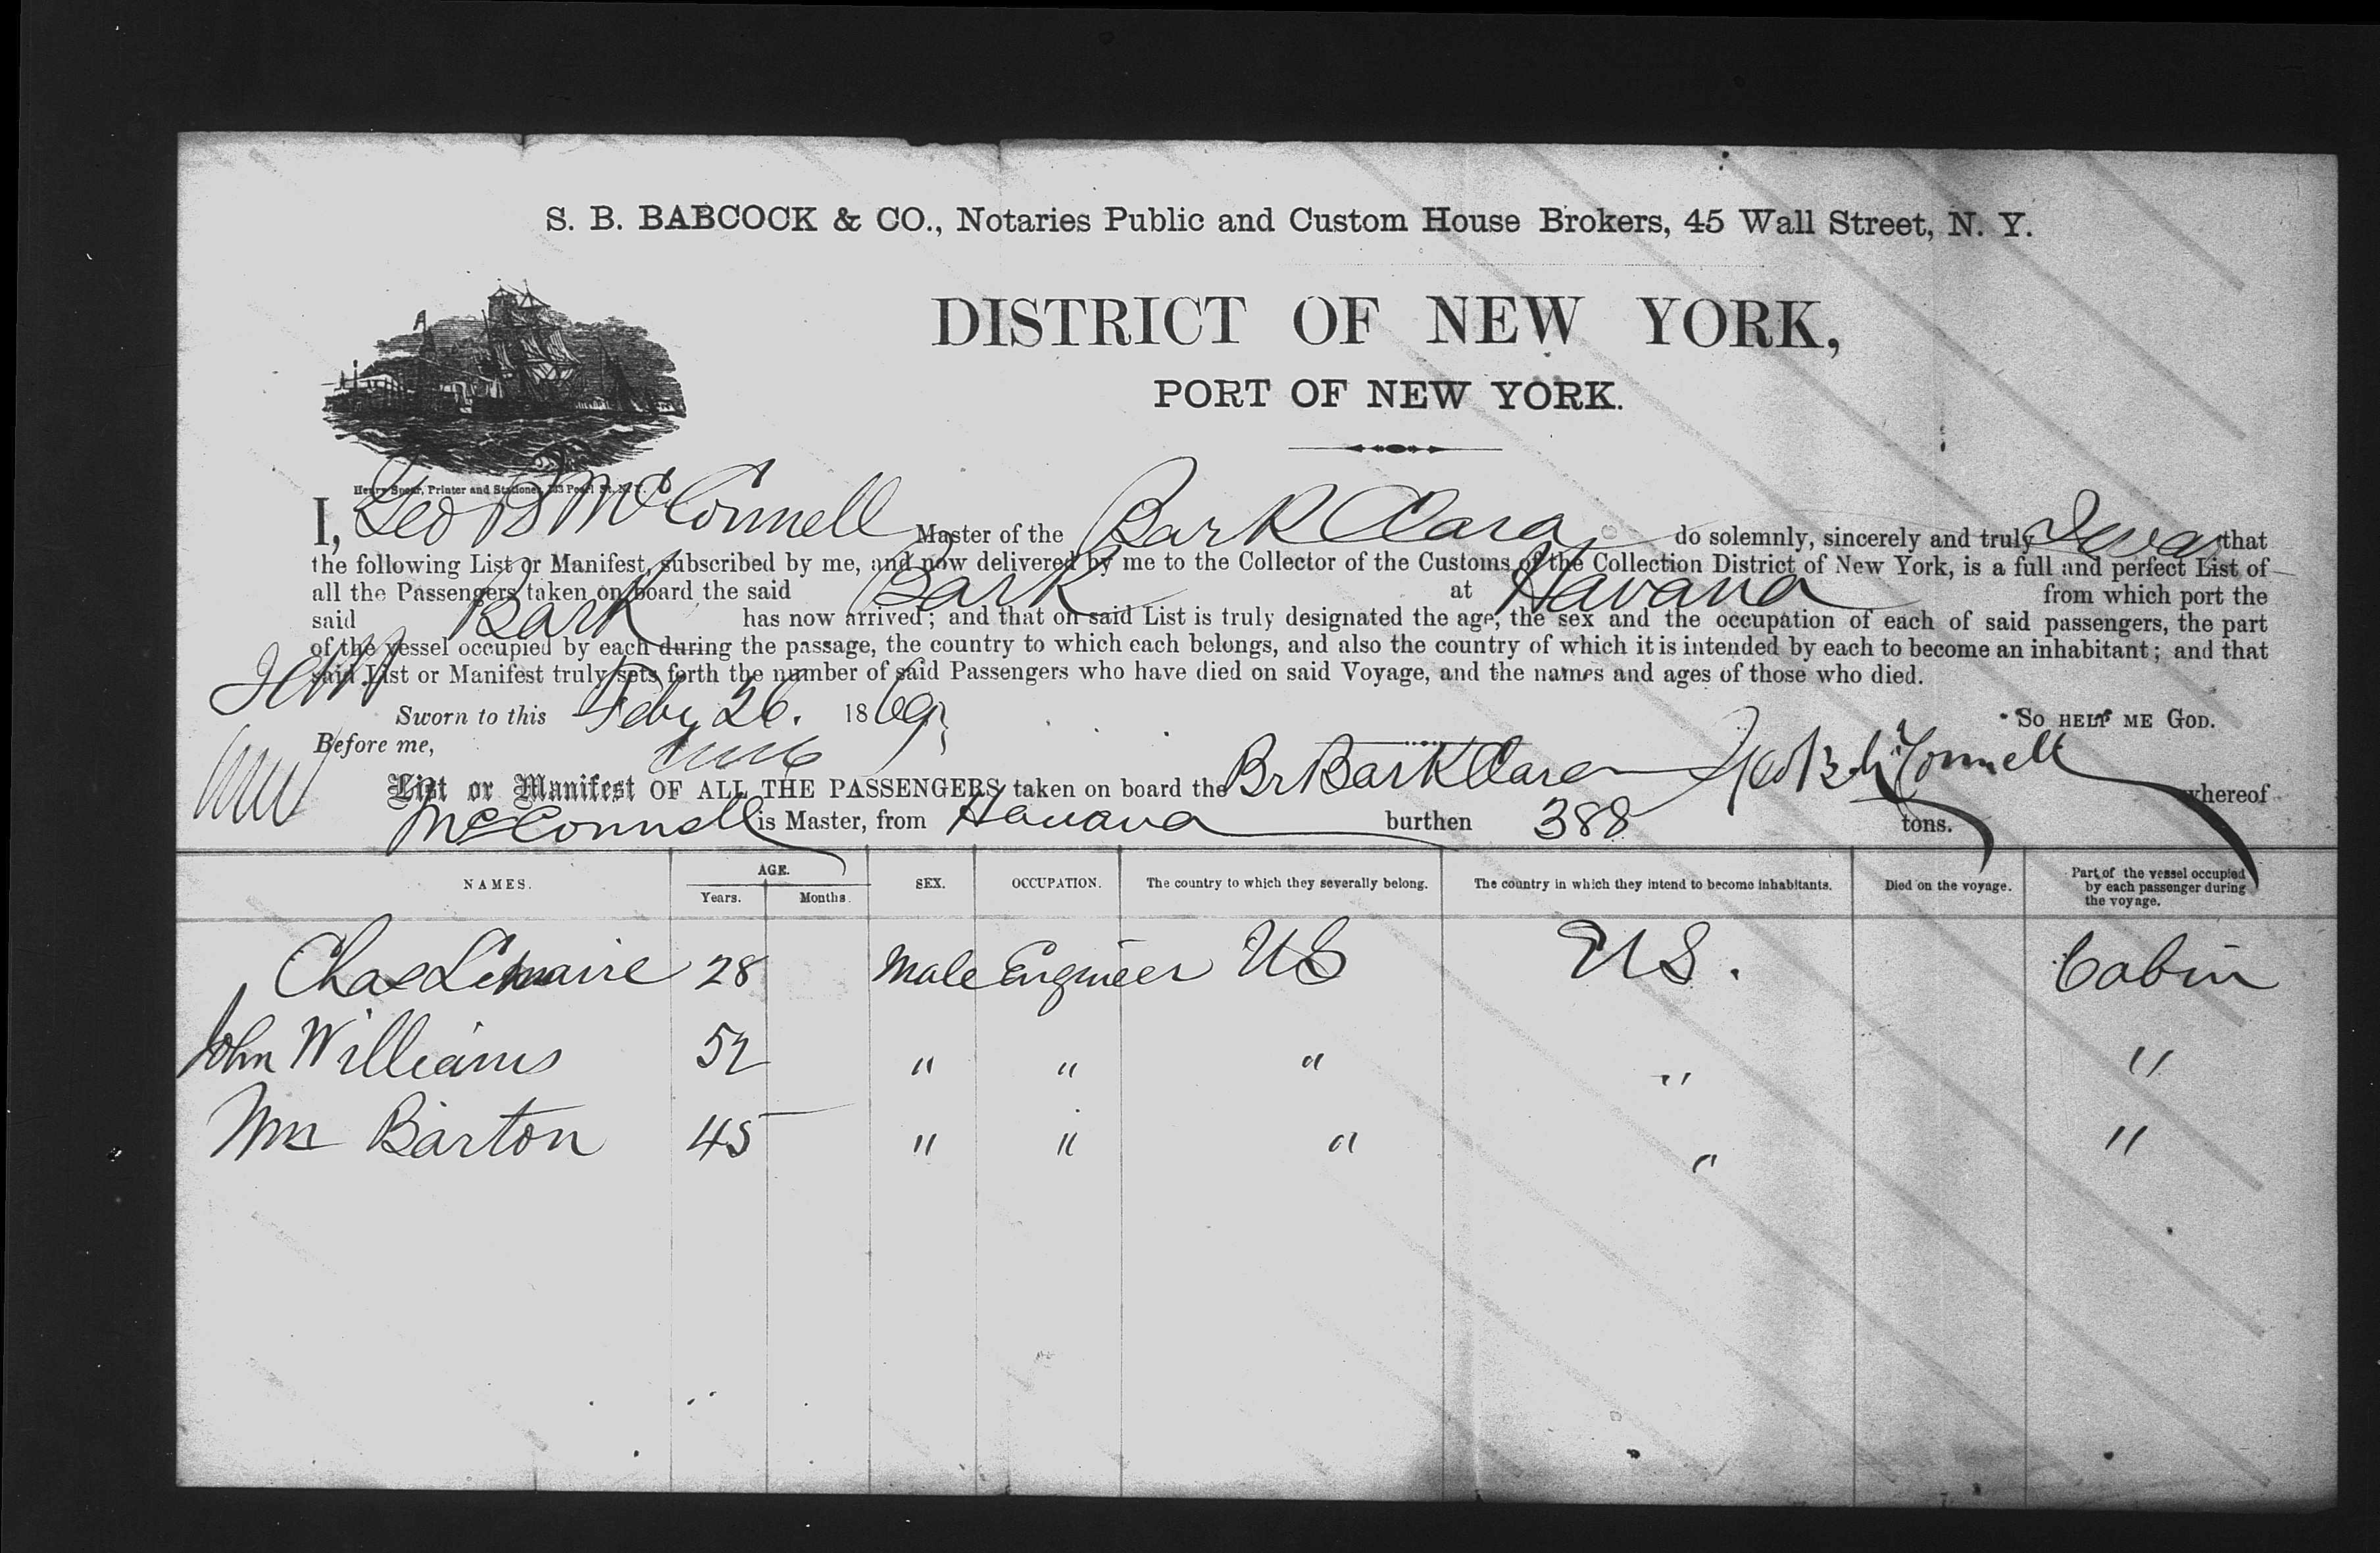 S. B. BABCOCK & CO., Notaries Public and Custom House Brokers, 45 Wall Street, N. Y.
DISTRICT OF NEW YORK,
PORT OF NEW YORK.
Henry Spear, Printer and Stationer, 133 Pearl St. N. Y.
I, Geo B McConnell Master of the Bark Clara do solemnly, sincerely and truly Swear that
the following List or Manifest, subscribed by me, and now delivered by me to the Collector of the Customs of the Collection District of New York, is a full and perfect List of
all the Passengers taken on board the said Bark at Havana from which port the
said Bark has now arrived; and that on said List is truly designated the age, the sex and the occupation of each of said passengers, the part
of the vessel occupied by each during the passage, the country to which each belongs, and also the country of which it is intended by each to become an inhabitant; and that
said List or Manifest truly sets forth the number of said Passengers who have died on said Voyage, and the names and ages of those who died.
Sworn to this Feby 26. 1869 So HELP ME GOD.
Before me,
Geo B McConnell
List or Manifest OF ALL THE PASSENGERS taken on board the Br Bark Clara whereof
McConnell is Master, from Havana burthen 388 tons.
NAMES. AGE. Years. Months. SEX. OCCUPATION. The country to which they severally belong. The country in which they intend to become inhabitants. Died on the voyage. Part of the vessel occupied by each passenger during the voyage.
Chas Lemaire 28 Male Engineer US US. Cabin
John Williams 52 " " " " "
Wm Barton 45 " " " " "